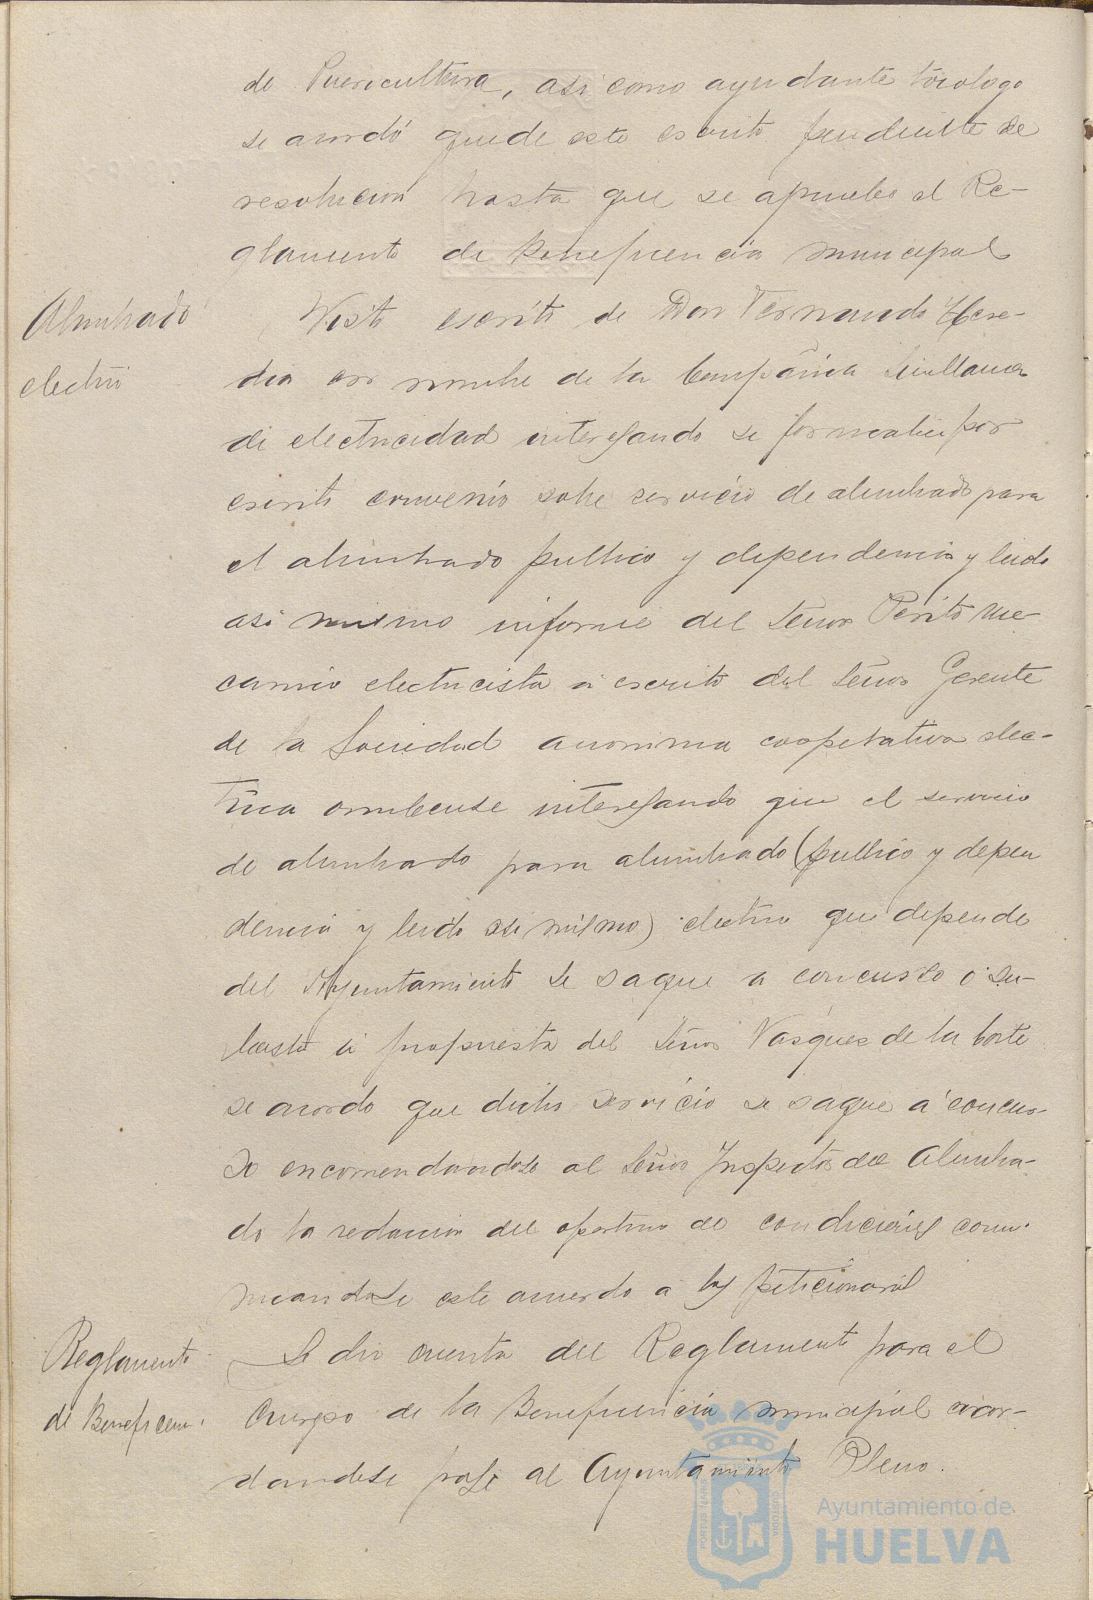 de Puericultura, asi como ayudante tocologo
se acordó quede este escrito pendiente de
resolucion hasta que se apruebe el Re-
glamento de Beneficencia municipal
Alumbrado
electri
Visto escrito de Don Fernando Here-
dia en nombre de la Compañia Sevillana
de electricidad interesando se formalice por
escrito convenio sobre servicio de alumbrado para
el alumbrado publico y dependencia y leido
asi mismo informe del Señor Perito me-
canico electricista a escrito del Señor Gerente
de la Sociedad anonima cooperativa elec-
trica onubense interesando que el servicio
de alumbrado para alumbrado (publico y depen
dencia y leido asi mismo) electrico que depende
del Ayuntamiento se saque a concurso o su-
basta a propuesta del Señor Vasques de la Corte
se acordo que dicho servicio se saque a concur-
so encomendandose al Señor Inspector del Alumbra-
do la redaccion del oportuno de condiciones comu-
nicandose este acuerdo a los peticionarios
Reglamento
de Beneficen.
Se dio cuenta del Reglamento para el
Cuerpo de la Beneficencia municipal acor-
dandose pase al Ayuntamiento Pleno.
Ayuntamiento de
HUELVA